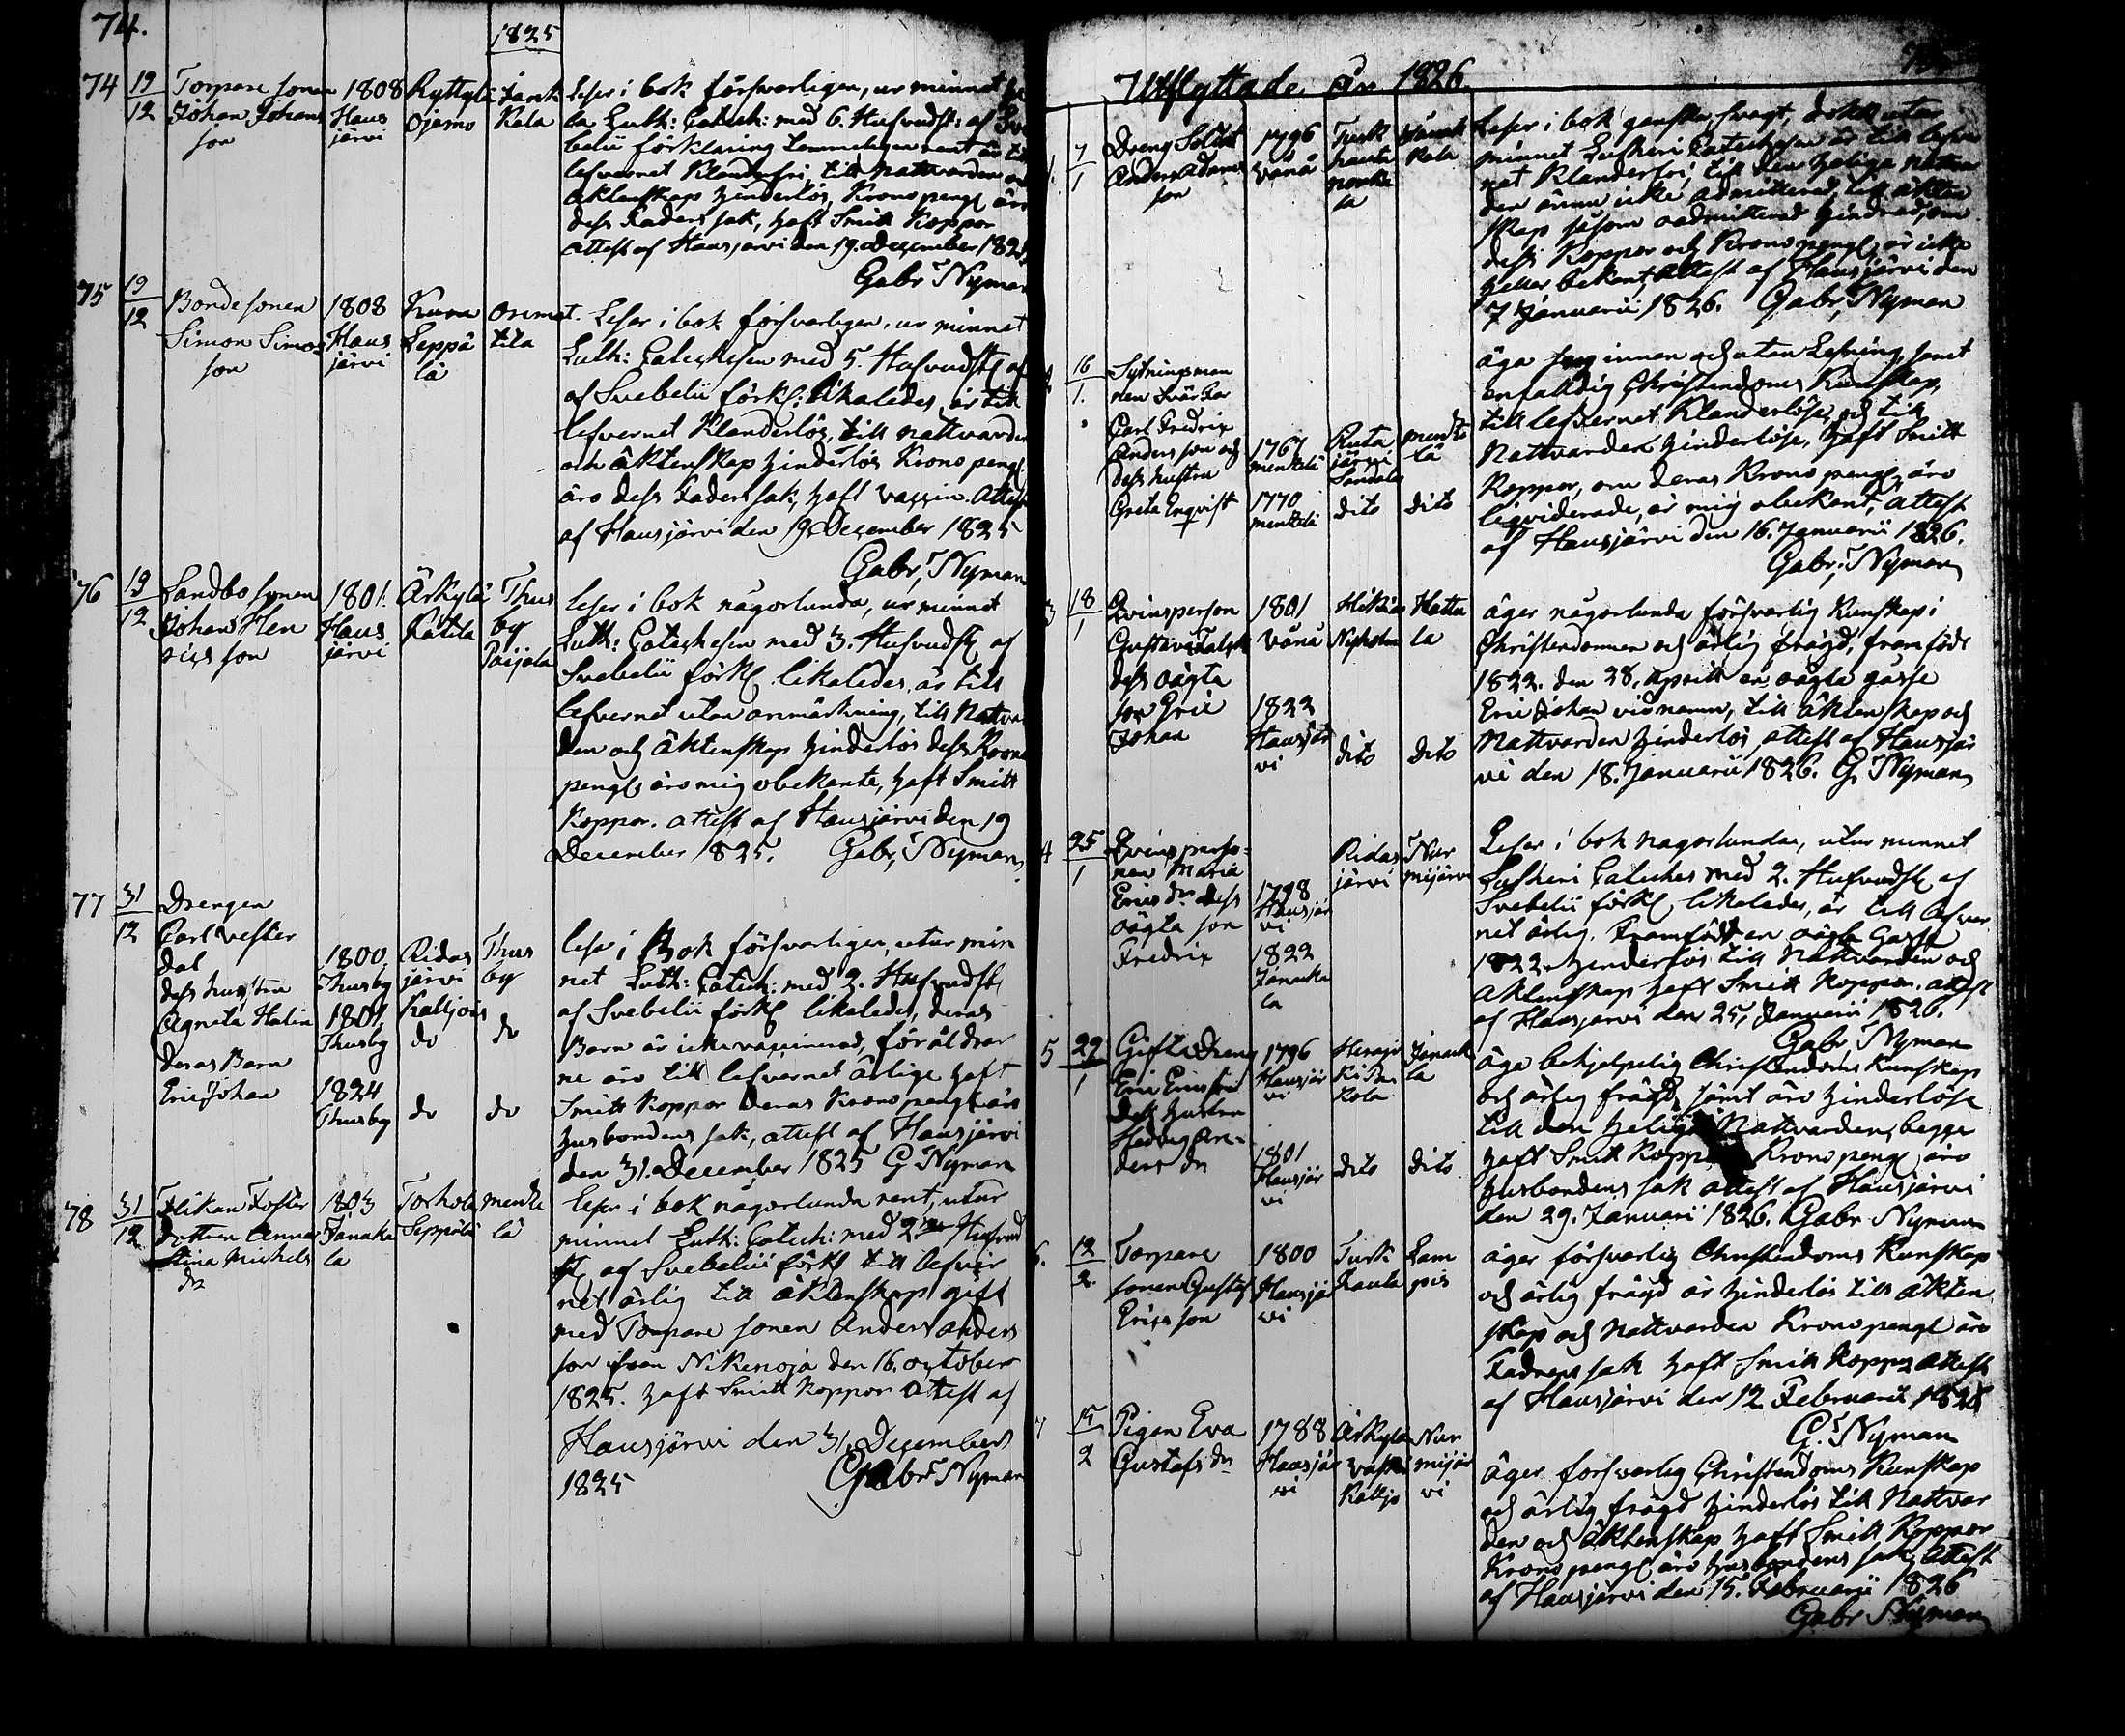 74.
1825
74 19/12 Torpare sonen Johan Johans son 1808 Haus järvi Ryttylä Ojamo Jank Kala
leser i bok försvarligen, ur minnet
la Luth: Catech: med 6. Hufvudst: af Sve
belii förklaring temmeligen rent är till
lefvernet Klanderfri, till nattvarden och
äktenskap hinderlös, Krono peng äro
dess Faders sak, haft Smitt Koppor
attest af Hausjärvi den 19. December 1825
Gabr, Nyman
75 19/12 Bonde sonen Simon Simos son 1808 Haus järvi Kuru Leppä lä Orimat tila
Leser i bok försvarligen, ur minnet
Luth: Catechesen med 5. Hufvudst af
af Svebelii förkl: likaledes, är till
lefvernet Klanderlös, till nattvarden
och äktenskap hinderlös Krono peng
äro dess Faders sak, haft vaccin. Attest
af Hausjärvi den 19 December 1825
Gabr, Nyman
76 19/12 Landbo sonen Johan Hen rics son 1801. Haus järvi Ärkylä Kätilä Thus by Paijala
leser i bok någorlunda, ur minnet
Luth: Catechesen med 3. Hufvudst af
Svebelii förkl likaledes, är till
lefvernet utan anmärkning, till Nattvar
den och äktenskap hinderlös dess Krono
peng äro mig obekante, haft Smitt
Koppor. attest af Hausjärvi den 19
December 1825. Gabr, Nyman
77 31/12 Drengen Carl Vester dal 1800. Thusby Ridas järvi Kalljois Thus by
dess hustru Agneta Halin 1801. Thusby do do
deras Barn Eric Johan 1824 Thusby do do
leser i Bok försvarligen, utur min
net Luth: Catech: med 2. Hufvudst
af Svebelii förkl likaledes, deras
Barn är icke vaccinerad, föräldrar
ne äro till lefvernet ärlige haft
Smitt koppor deras Krono peng äro
husbondens sak, attest af Hausjärvi
den 31. December 1825 G Nyman
78 31/12 Flikan Foster dottren Anna Stina Michels dr 1803 Janaka la Torhola Seppälä Mente lä
leser i bok någorlunda rent, utur
minnet Luth: Catech: med 2. Hufvud
st af Svebelii förkl till lefver
net ärlig till äktenskap gift
med Torpare sonen Anders Anders
son ifrån Nikenoja den 16. october
1825. haft Smitt koppor attest af
Hausjärvi den 31. December
1825 Gabr Nyman
Utflyttade År 1826.
1. 7/1 Dreng Soldat Anders Adams son 1796 Vånå Turk hauta Janak kala
Leser i bok ganska svagt, dock utur
minnet Lutheri Catechesen är till lefver
net Klanderfri, till den heliga nattvar
den ännu icke admitterad, till äkten
skap såsom oadmitterad hindrad, om
dess Koppor och Krono peng är icke
heller bekant, Attest af Hausjärvi den
7 Januarii 1826. Gabr, Nyman
2 16/1. Sytningsman nen Svär Far Carl Fredric Anders son och 1767 Mentelä Ruta järvi Sandals mente lä
dess hustru Greta Enqvist 1770 mentelä dito dito
äga sig innan och utan Lesning samt
enfaldig Christendoms Kunskap,
till lefvernet Klanderlöse, och till
Nattvarden hinderlöse, haft Smitt
Koppor, om deras Krono peng äro
liqviderade, är mig obekant, attest
af Hausjärvi den 16. Januarii 1826.
Gabr, Nyman
3 18/1 Qvinsperson Gustava Falck 1801 Vånå Hikiäs Hattu la
dess oägta son Eric Johan 1822 Hausjär vi dito dito
äger någorlunda försvarlig Kunskap i
Christendomen och ärlig frägd, framfödt
1822. den 28. Aprill en oägta gåsse
Eric Johan vid namn, till äktenskap och
Nattvarden hinderlös attest af Hausjär
vi den 18. Januarii 1826. G Nyman
4 25/1 Qvins perso- nen Maria Erics dr dess 1798 Hausjär vi Ridas järvi Nur mijärvi
oägta son Fredric 1822 Janacka la
Leser i bok någorlunda, utur minnet
Lutheri Catechès med 2. Hufvudst af
Svebelii förkl likaledes, är till lefver
net ärlig. Framfödt en oägta Gåsse
1822. hinderlös till Nattvarden och
äktenskap haft Smitt Koppor. attest
af Hausjärvi den 25. Januarii 1826.
Gabr Nyman
5 29/1 Gifte Dreng Eric Ericsson 1796 Hausjär vi Janack la
dess hustru Hedvig An- ders dr 1801 Hausjär vi dito dito
äga behjelpelig Christendoms Kunskap
och ärlig frägd, samt äro hinderlöse
till den heliga Nattvarden, begge
haft Smitt Koppor Krono peng äro
husbondens sak attest af Hausjärvi
den 29. Januarii 1826. Gabr Nyman
6. 12/2. Torpare sonen Gustaf Erics son 1800 Hausjär vi Turk hauta Lam pis
äger försvarlig Christendoms Kunskap
och ärlig frägd är hinderlös till äkten
skap och Nattvarden Krono peng äro
Fadrens sak haft Smitt Koppor Attest
af Hausjärvi den 12. Februarii 1826
G. Nyman
7 15/2 Pigan Eva Gustafs dr 1788 Hausjär vi Ärkylä Nur mijär vi
äger försvarlig Christendoms Kunskap
och ärlig frägd hinderlös till Nattvar
den och äktenskap haft Smitt Koppor
Krono peng äro husbondens sak, Attest
af Hausjärvi den 15. Februarii 1826
Gabr Nyman